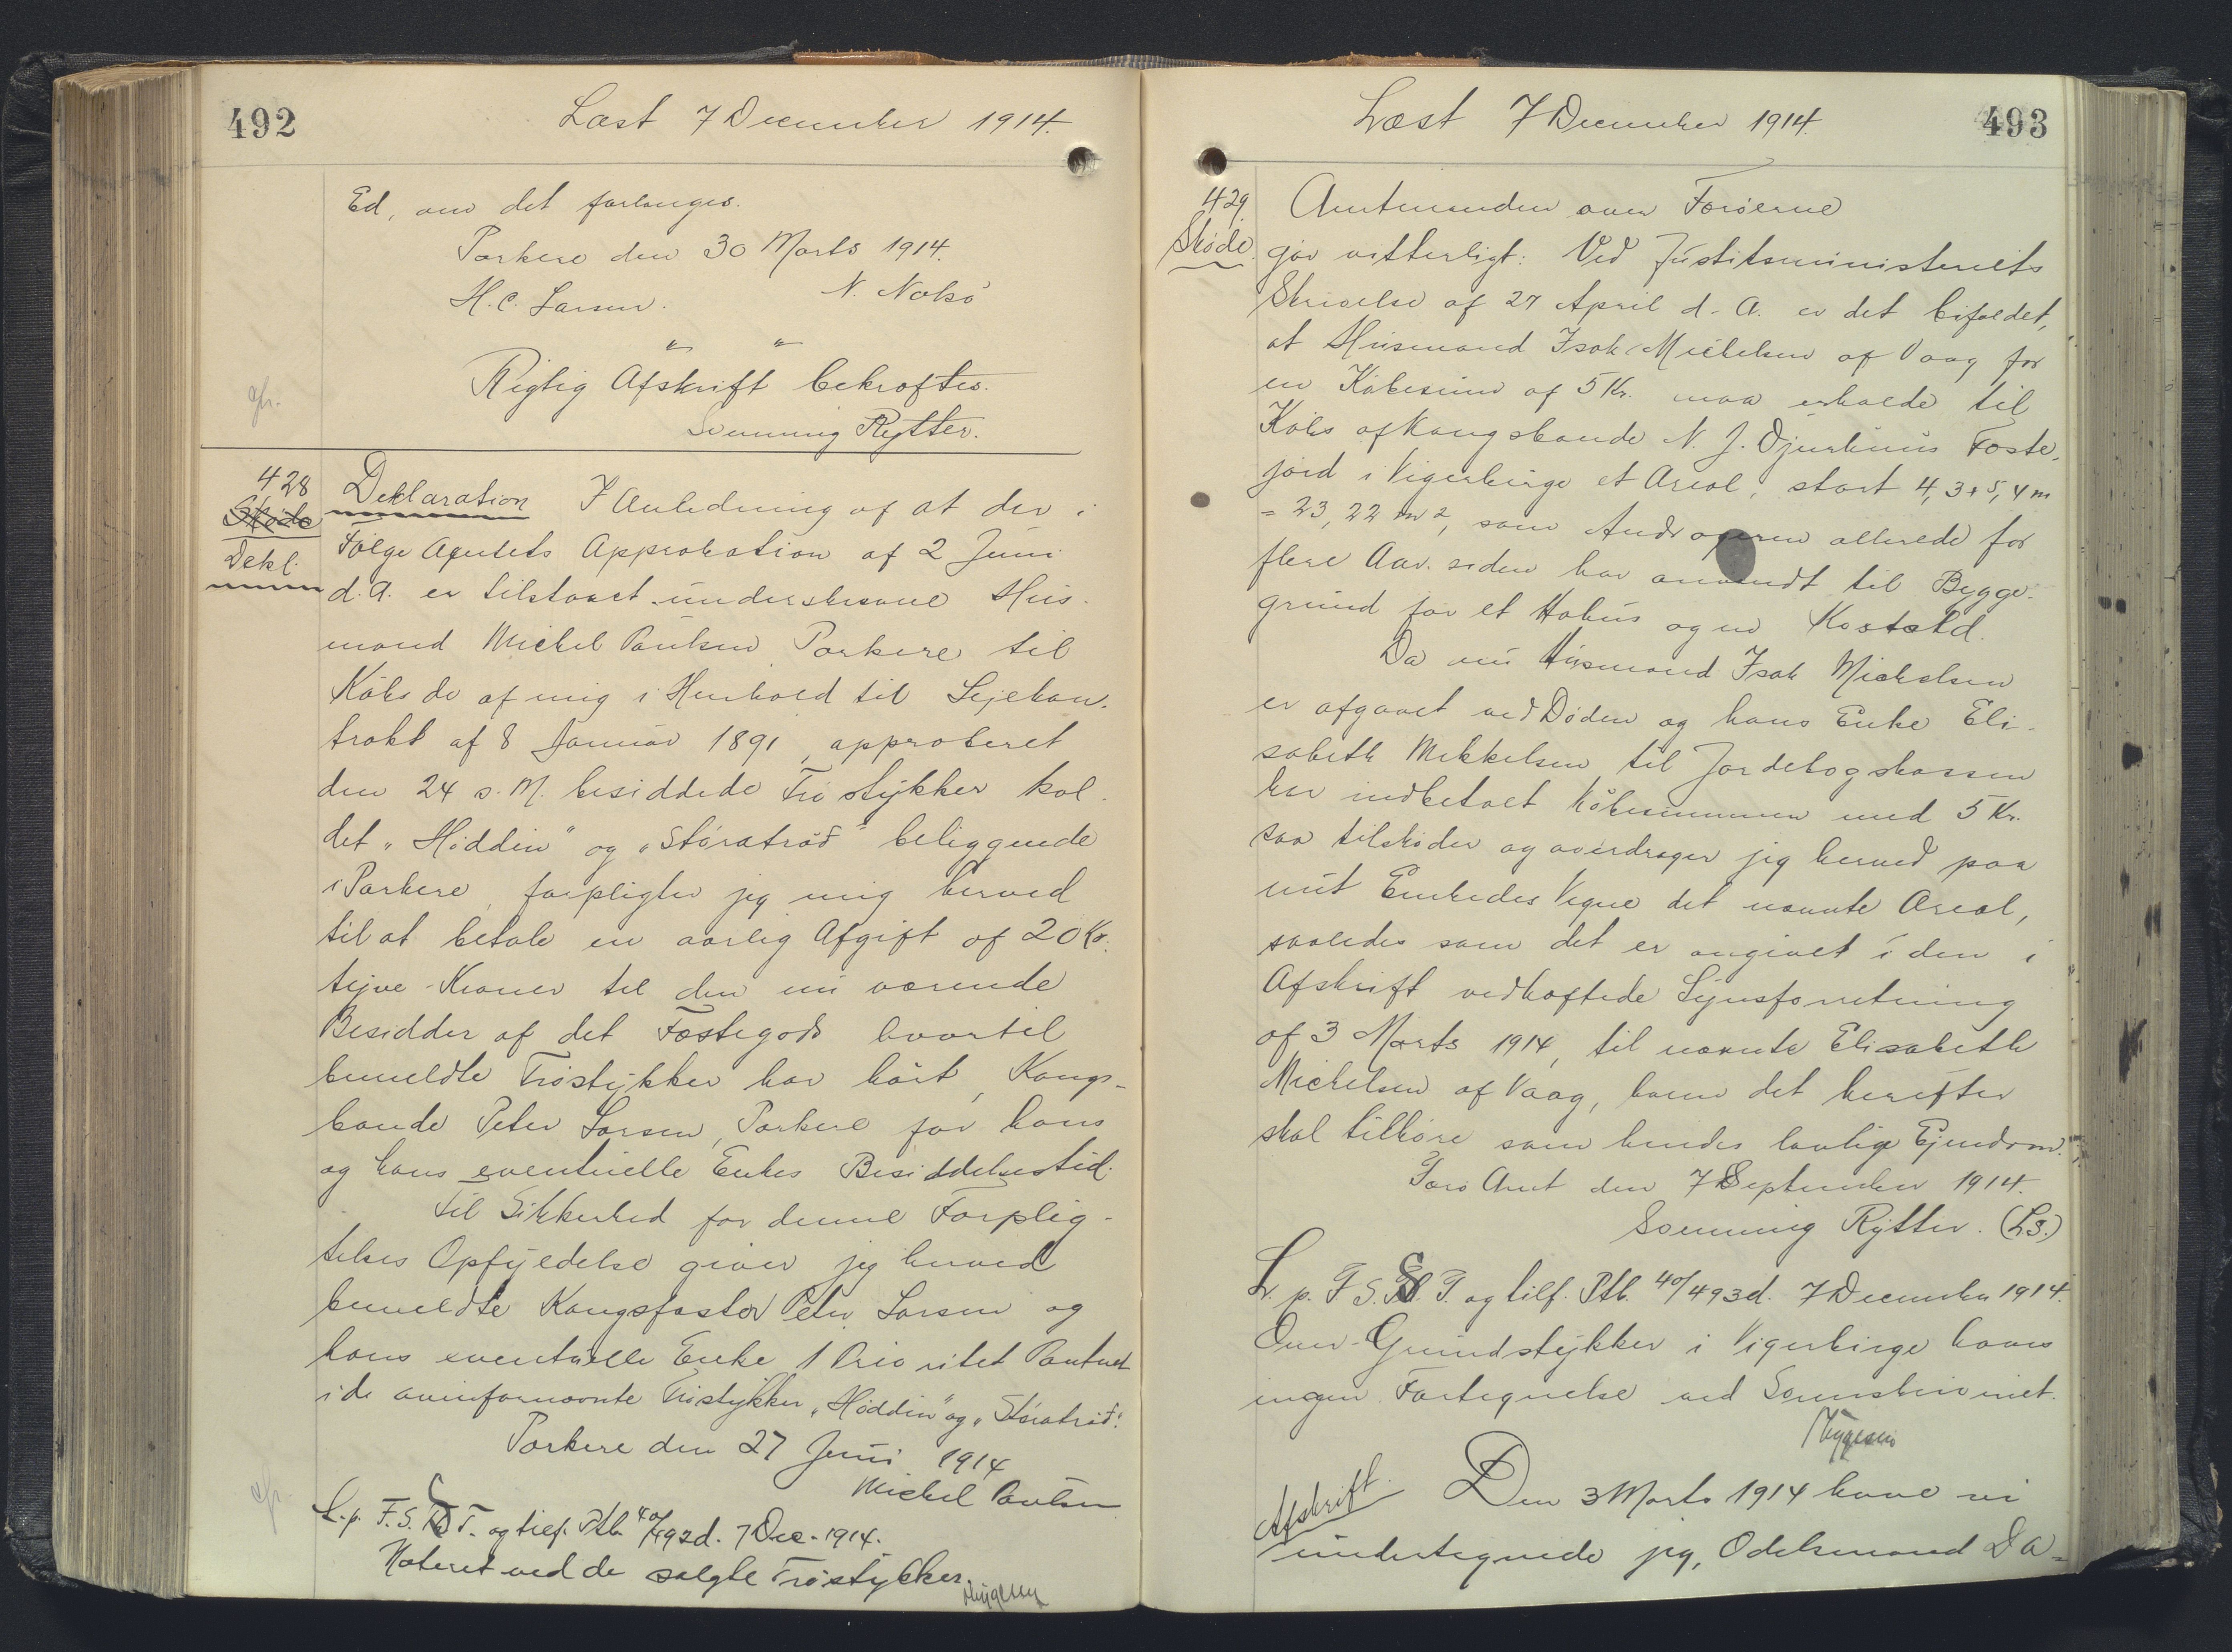 492
Læst 7 December 1914.
Ed, om det forlanges.
Porkere den 30 Marts 1914.
H. C. Larsen. N. Nolsø
" "
Rigtig Afskrift bekræftes.
Svenning Rytter.
428
Skøde
Dekl.
Deklaration I Anledning af at der i
Følge Amtets Approbation af 2 Juni
d. A. er tilstaaet underskrevne Hus-
mand Michel Poulsen Porkere til
Købs de af mig i Henhold til Lejekon-
trakt af 8 Januar 1891, approberet
den 24 s. M. besiddede Trøstykker kal-
det "Høddin" og "Støratrøð" beliggende
i Porkere, forpligter jeg mig herved
til at betale en aarlig Afgift af 20 Kr.
tyve Kroner til den nu værende
Besidder af det Fæstegods hvortil
bemeldte Trøstykker har hørt, Kongs-
bonde Peter Larsen, Porkere for hans
og hans eventuelle Enkes Besiddelsestid.
Til Sikkerhed for denne Forplig-
telses Opfyldelse giver jeg herved
bemeldte Kongsfæster Peter Larsen og
hans eventuelle Enke 1 Prioritet Panteret
i de ovenfornævnte Trøstykker "Høddin" og "Støratrøð".
Porkere den 27 Juni 1914
Michel Poulsen
L. p. F. S. T. og tilf. Ptb. 40/492 d. 7 Dec. 1914.
Noteret ved de solgte Trøstykker.
Thygesen
Læst 7 December 1914.
493
429.
Skøde.
Amtmanden over Færøerne
gør vitterligt: Ved Justitsministeriets
Skrivelse af 27 April d. A. er det bifaldet,
at Husmand Isak Michelsen af Vaag for
en Købesum af 5 Kr. maa erholde til
Købs af Kongsbonde N. J. Djurhuus Fæste-
jord i Vigerbirge et Areal, stort 4,3 * 5,4 m
= 23,22 m2, som Andrageren allerede for
flere Aar siden har anvendt til Bygge-
grund for et Høhus og en Kostald.
Da nu Husmand Isak Michelsen
er afgaaet ved Døden og hans Enke Eli-
sabeth Mikkelsen til Jordebogskassen
har indbetalt Købesummen med 5 Kr.
saa tilskøder og overdrager jeg herved paa
mit Embedes Vegne det nævnte Areal,
saaledes som det er angivet i den i
Afskrift vedhæftede Synsforretning
af 3 Marts 1914, til nævnte Elisabeth
Michelsen af Vaag, hvem det herefter
skal tilhøre som hendes lovlige Ejendom.
Færø Amt den 7 September 1914.
Svenning Rytter. (L.S.)
L. p. F. S. T. og tilf. Ptb. 40/493 d. 7 December 1914.
Over Grundstykker i Vigerbirge haves
ingen Fortegnelse ved Sorenskriveriet.
Thygesen
Afskrift. Den 3 Marts 1914 have vi
undertegnede jeg, Odelsmand Da=